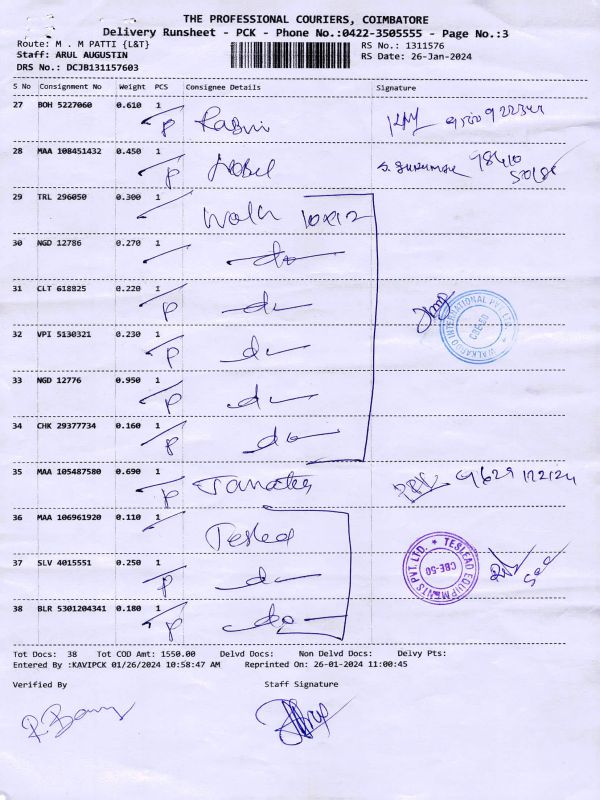 THE PROFESSIONAL COURIERS, COIMBATORE
Delivery Runsheet - PCK - Phone No.:0422-3505555 - Page No.:3
Route: M . M PATTI {L&T}
Staff: ARUL AUGUSTIN
DRS No.: DCJB131157603
RS No.: 1311576
RS Date: 26-Jan-2024
S No Consignment No Weight PCS Consignee Details Signature
27 BOH 5227060 0.610 1
P
28 MAA 108451432 0.450 1 Nobel
P
29 TRL 296050 0.300 1
30 NGD 12786 0.270 1 do
31 CLT 618825 0.220 1 do
P
32 VPI 5130321 0.230 1 do
P
WALKAROO INTERNATIONAL PVT. LTD. * CBE-50
33 NGD 12776 0.950 1 do
P
34 CHK 29377734 0.160 1 do
P
35 MAA 105487580 0.690 1
P
36 MAA 106961920 0.110 1 Teslead
37 SLV 4015551 0.250 1 do
P
TESLEAD EQUIPMENTS PVT. LTD. * CBE-50
38 BLR 5301204341 0.180 1 do
P
Tot Docs: 38 Tot COD Amt: 1550.00 Delvd Docs: Non Delvd Docs: Delvy Pts:
Entered By :KAVIPCK 01/26/2024 10:58:47 AM Reprinted On: 26-01-2024 11:00:45
Verified By Staff Signature